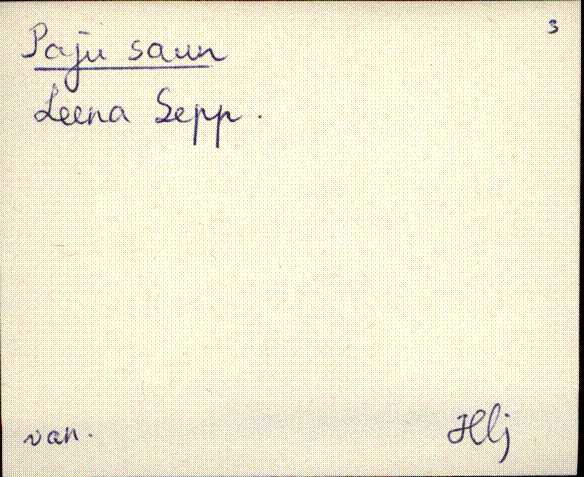 3
Paju saun
Leena Sepp.
van.
Hlj